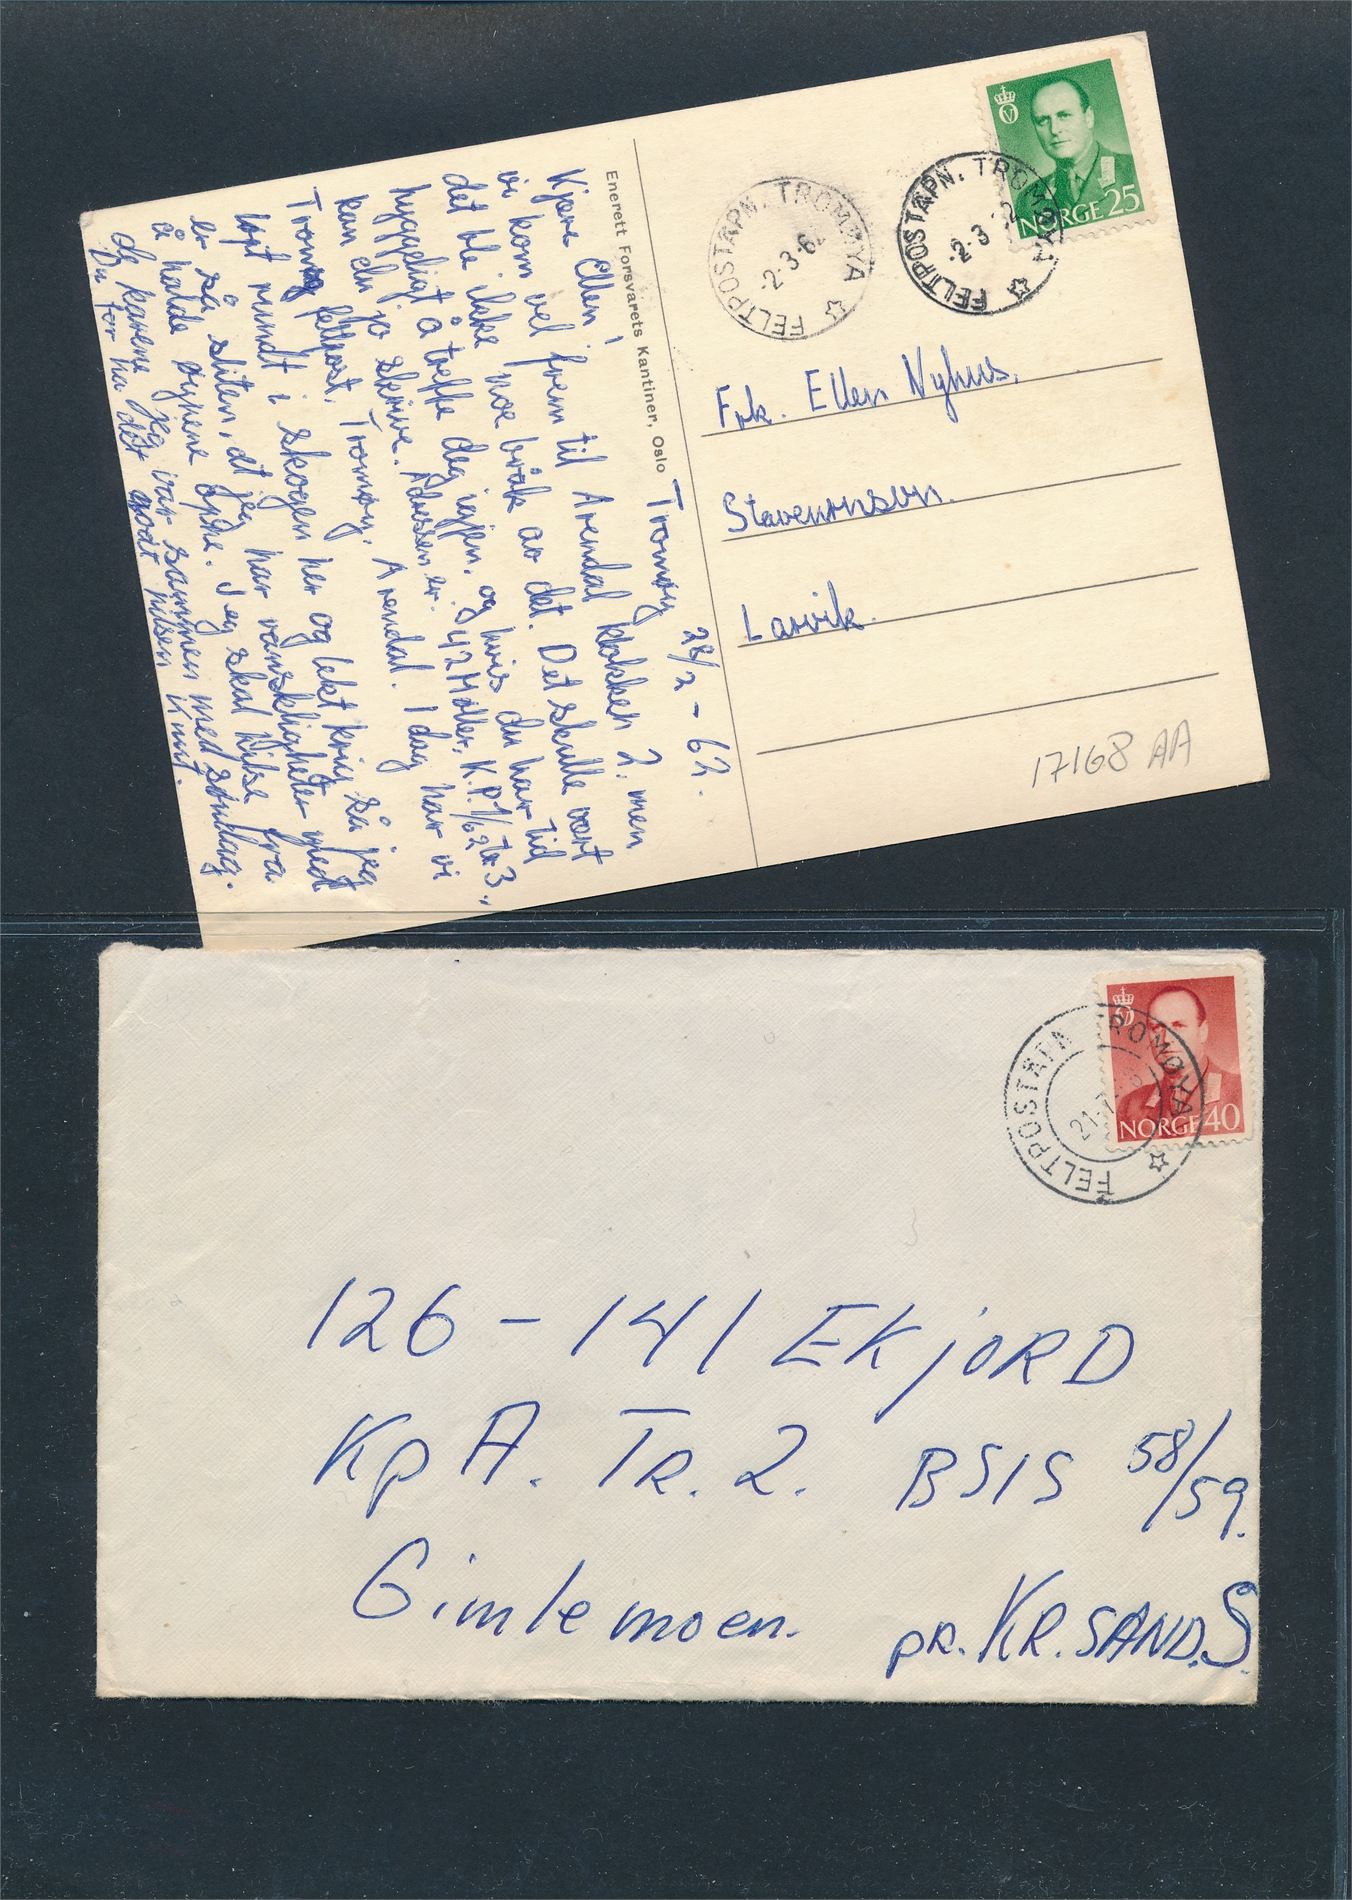 Tromøy 28/2 - 62.
Kjære Ellen!
vi kom vel frem til Arendal klokken 2. men
det ble ikke noe bråk av det. Det skulle vært
hyggeligt å treffe deg igjen, og hvis du har tid
kan du jo skrive. Adressen er. 42 Møller, K.P. 1/62 tr 3.,
Tromøy feltpost, Tromøy, Arendal. I dag har vi
løpt rundt i skogen her og lekt krig så jeg
er så sliten, at jeg har vanskligheter med
å holde øynene åpne. Jeg skal hilse fra
de karene jeg var sammen med søndag.
Du får ha det godt hilsen Knut.
Enerett Forsvarets Kantiner, Oslo
NORGE 25
FELTPOSTÅPN. TROMØYA
-2-3-62
FELTPOSTÅPN. TROMØYA
-2-3
Frk. Ellen Nyhus.
Stavernsvn.
Larvik.
17168 AA
NORGE 40
FELTPOSTÅPN TROMØYA
126 - 141 EKJORD
Kp A. TR. 2. BSIS 58/59.
Gimlemoen. pr. KR.SAND.S.